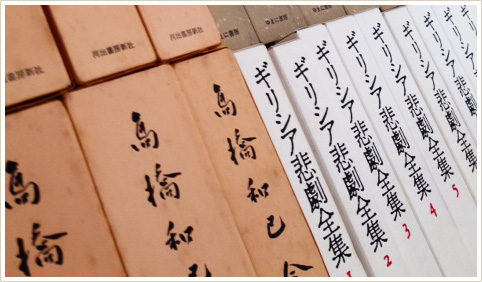 出書房新社
河出書房新社
河出書房新社
ゆまに書房
ゆまに書房
高橋
高橋和
高橋和巳全
ギリシア悲劇全集 1
ギリシア悲劇全集 2
ギリシア悲劇全集 3
ギリシア悲劇全集 4
ギリシア悲劇全集 5